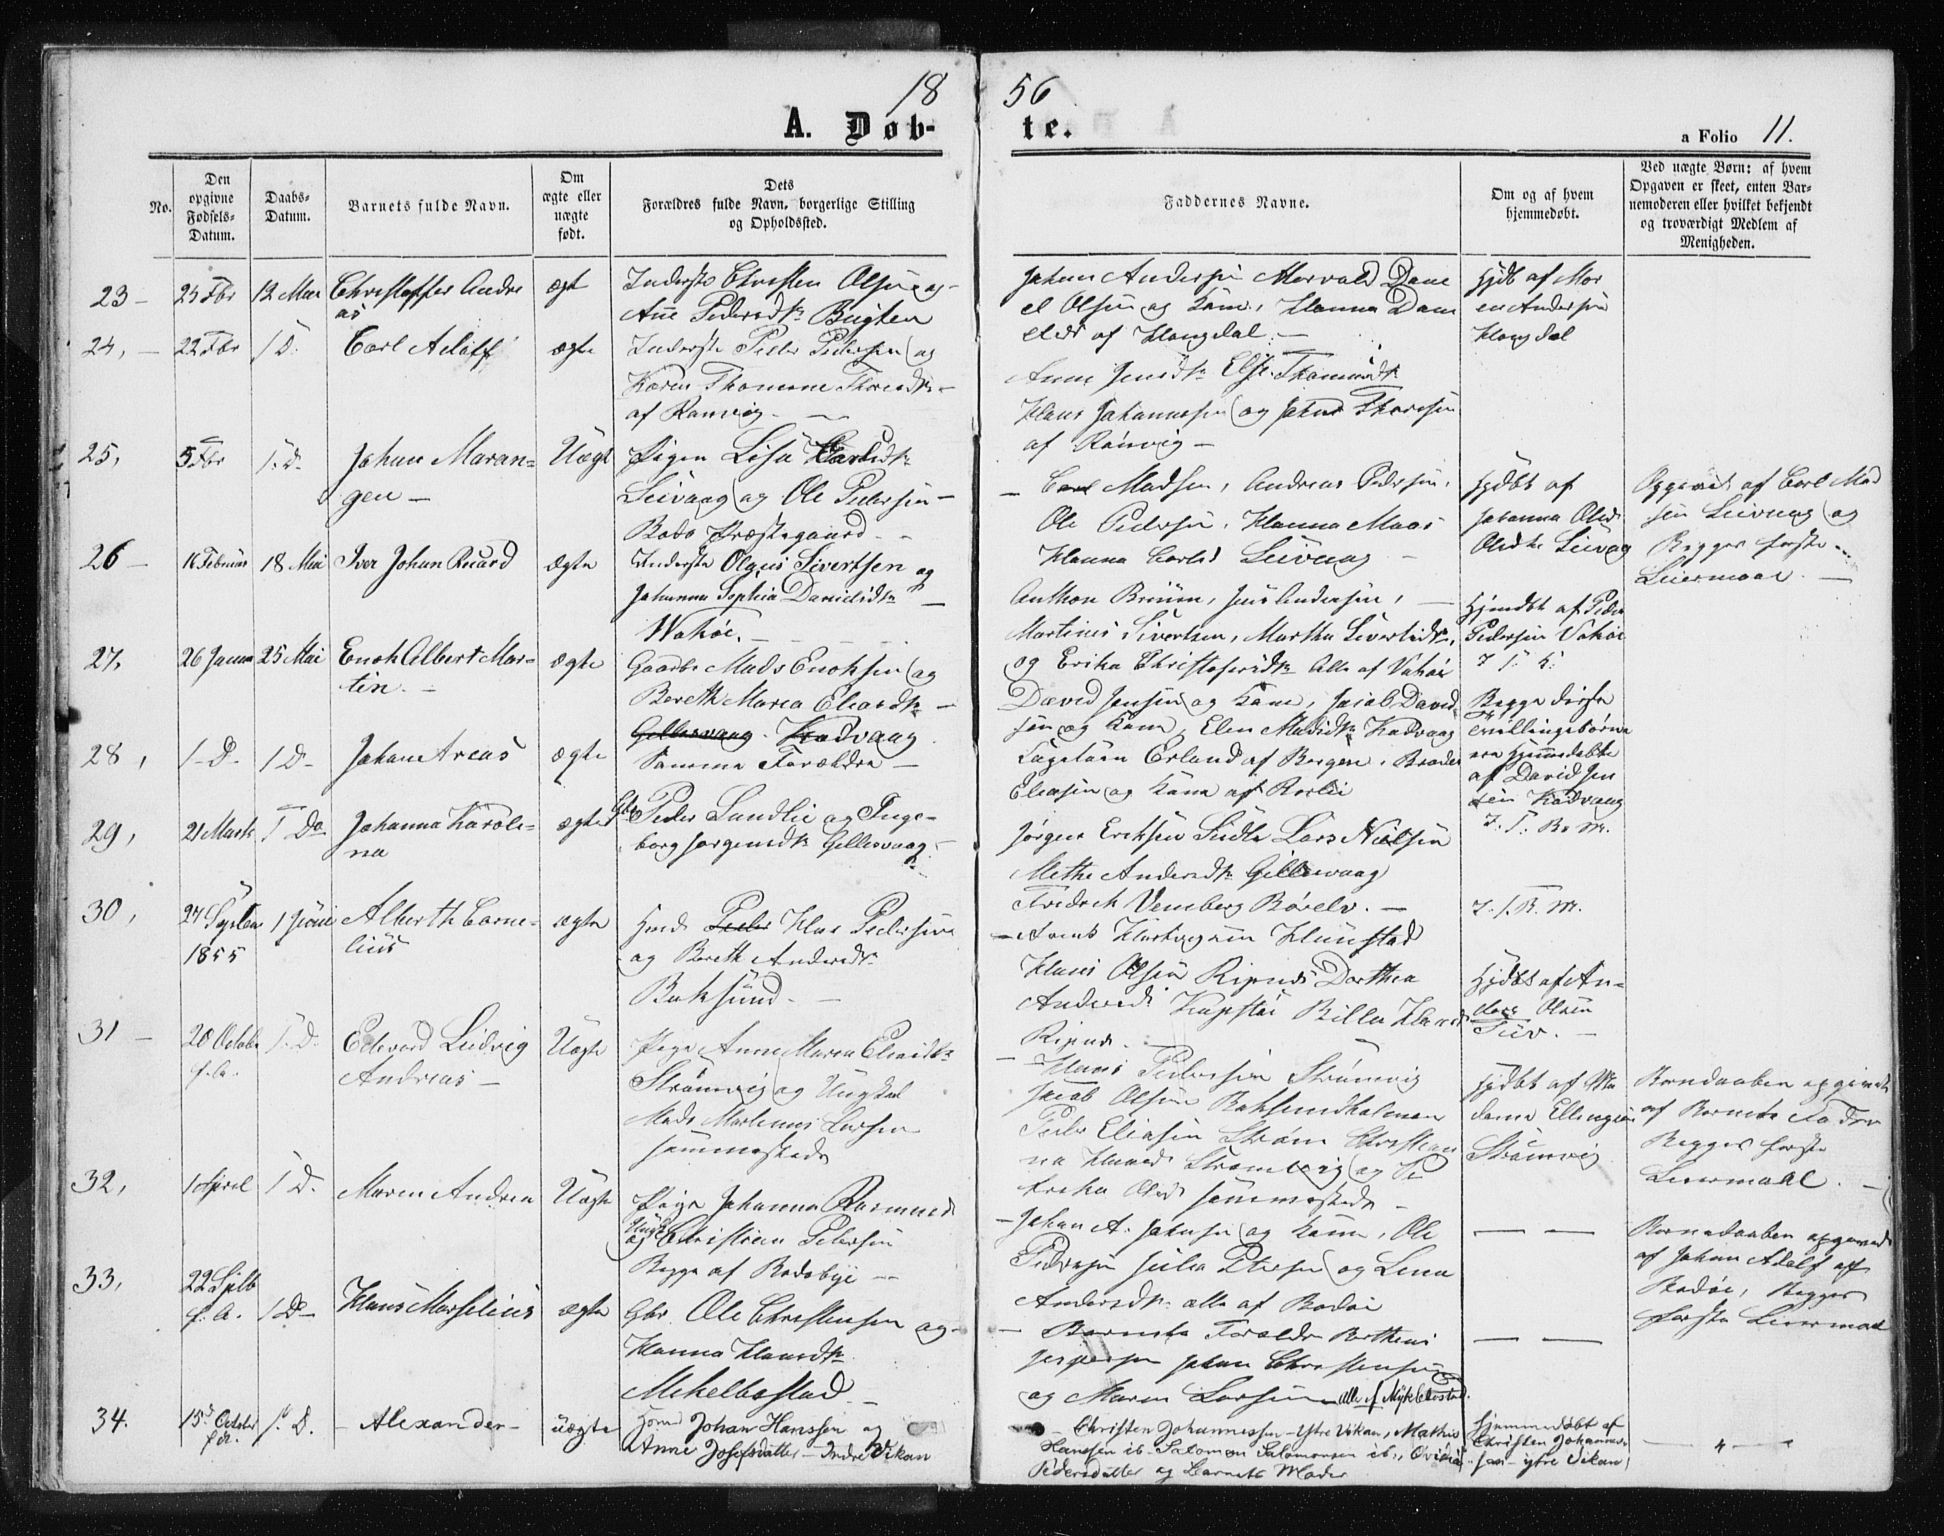 1856
A. Døbte.
a Folio 11.
No.
Den opgivne Fødsels-Datum.
Daabs-Datum.
Barnets fulde Navn.
Om ægte eller uægte født.
Dets Forældres fulde Navn, borgerlige Stilling og Opholdssted.
Faddernes Navne.
Om og af hvem hjemmedøbt.
Ved uægte Børn: af hvem Opgaven er skeet, enten Barnemoderen eller hvilket bekjendt og troværdigt Medlem af Menigheden.
23 - 25 Fbr 12 Mai Christoffer Andreas ægt
Inderste Christen Olsen og
Ane Pedersdtr Bugten
Johan Andersen Morvald Dani
el Olsen og Kone, Hanna Dani
elsd af Hongdal -
Hjdbt af Mor
en Andersen
Hongdal
24, - 22 Fbr 1 D. Carl Adolff ægte
Inderste Peder Pedersen og
Karen Thomine Thoresdtr -
af Rønvig -
Anne Jensdtr Else Thomasdtr
Hans Johannessen og Johan Thoresen
af Rønvig -
25, 5 Fbr 1. D. Johan Maran-
gen - Uægt
Pigen Lisa Carlsdtr
Seivaag og Ole Pedersen -
Bodø Præstegaard -
- Carl Madsen, Andreas Pedersen,
Ole Pedersen, Hanna Maas
Hanna Carlsd Seivaag -
Hjdbt af
Johanna Ols
Olsdtr Seivåg
Opgivet af Carl Mad
sen Seivaag og
Begges første
Leiermaal. -
26 16 Februar 18 Mai Iver Johan Ruard Ægte
Inderste Olaus Sivertsen og
Johanna Sophia Danielsdtr -
Wahøe. -
Anthon Bruun, Jens Andersen, -
Martinus Sivertsen, Martha Sivertsdtr,
og Erika Christofersdtr Alle af Vahøe
Hjemdbt af Peder
Pedersen Vahøe
I. T. K.
27, 26 Janua 25 Mai Enok Albert Mar-
tin. - ægte
Gaardbr Mads Enoksen og
Bereth Maria Eliasdtr -
Gillesvaag - Kadvaag
David Jensen og Kone, Jacob David
sen og Kone, Elen Madsdtr Kadvaag
Begge disse
Tvillingebørn
ere Hjemmedøbte
af David Jen
sen Kadvaag
I. T. B. M.
28, 1 D. 1 D. Johan Areas ægte
Samme Forældre -
Capetain Erland af Bergen, Broder
Eliasen og Kone af Roslie
29, 21 Marts 1 Do Johanna Karoli-
na ægte
Gbr Peder Sundlie og Inge-
borg Jørgensdtr Gillesvaag -
Jørgen Eriksen Seidle Lars Nielsen
Methe Andersdtr Gillesvaag
Fredrik Vemberg Børelv. -
I. T. B. M.
30, 27 Septem
1855 1 Juni Alberth Corne-
lius ægte
Hmd Peder Hans Pedersen
og Bereth Andersdtr
Baksund. -
- Arent Hartvigsen Hunstad
Hans Olsen Ripnes Dorthea
Andersd Kapstøe Bille Hansd
Ripnes. -
Hjdbt af An-
ders Olsen
Tuv. -
31 - 20 Octobr
f. A. 1. D. Edvard Ludvig
Andreas - Uægte
Pige Anne Maren Eliasdtr
Strømvig og Ungkal
Mads Martinus Larsen
sammesteds
- Hans Pedersen Strømvig
Jacob Olsen Baksundholmen
Peder Eliasen Strøm Christian
na Hansd Strømvig og Fre
drika Olsd sammesteds -
Hjdbt af Ma
dame Ellingsen
Strømvig
Borndaaben opgivet
af Barnets Fader
Begges første
Leiermaal. -
32, 1 April 1 D. Maren Andrea Uægte
Pige Johanna Rasmusd
og Ungk Christian Petersen
Begge af Bodøbye -
- Johan A. Johnsen og Kone, Ole
Pedersen Julia Petersen og Lena
Andersdtr alle af Bodøe
- -
Barnedaaben opgivet
af Johan Adolf af
Bodøe, Begges
første Leiermaal
33, 22 Septb
f. A. 1 Do - Hans Marselius ægte
Gbr. Ole Christensen og -
Hanna Hansdtr
Mikelbostad -
- Barnets Forældre Berthens
Jespersen Johan Christensen
og Maren Larsen - alle af Myklebostad.
- -
34. 15d October
f. A. 1. D. - Alexander - uægte
Hmd Johan Hanssen og
Anne Josefsdatter - Indre Vikan
- Christen Johannessen - Ytre Vikan, Mathis
Hansen ib - Salomon Salomonsen ib., Ovidia
Pedersdatter og Barnets Moder
Hjemmedøbt af
Christen Johannes-
sen - ytre Vikan
- " -